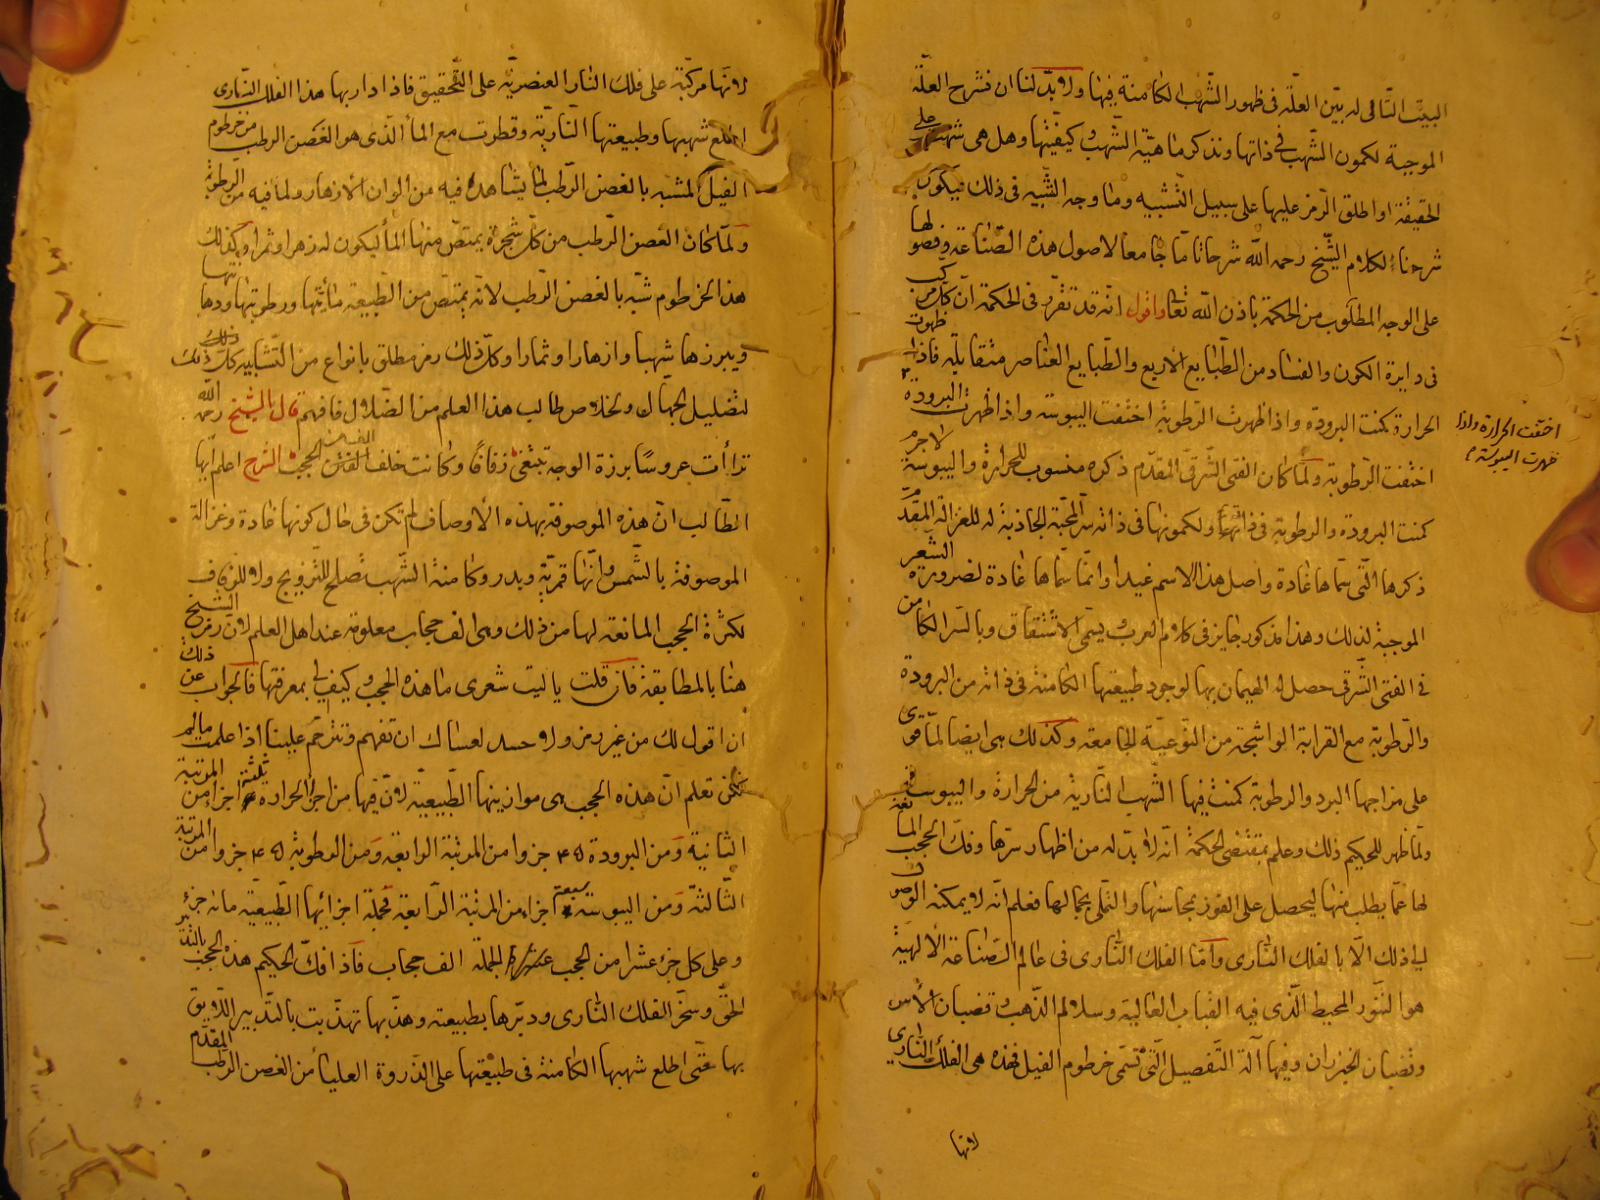 البيت التالى له بيّن العلّة فى ظهور الشّهب الكامنة فيها ولا بدّ لنا ان نشرح العلّة
الموجبة لكمون الشّهب فى ذاتها ونذكر ماهيّة الشّهب وكيفيّتها وهل هى شهب على
الحقيقة او اطلق الرّمز عليها على سبيل التّشبيه وما وجه الشّبيه فى ذلك ليكون
شرحنا لكلام الشّيخ رحمه الله شرحا تامّا جامعا لاصول هذه الصّناعة وفصولها
على الوجه المطلوب من الحكمة باذن الله تعالى واقول انّه قد تقرّر فى الحكمة ان كلّ مركّب
فى دايرة الكون والفساد من الطّبايع الاربع والطّبايع العناصر متقابلة فاذا ظهرت
الحرارة كمنت البرودة واذا ظهرت الرّطوبة اختفت اليبوسة واذا ظهرت البرودة
اختفت الحرارة واذا
ظهرت اليبوسة
اختفت الرّطوبة ولمّا كان الفتى الشّرقى المقدّم ذكره منسوب للحرارة واليبوسة لا جرم
كمنت البرودة والرطوبة فى ذاته ولكمونها فى ذاته سرّ المحبّة الجاذبة له للغزالة المقدّم
ذكرها الّتى سمّاها غادة واصل هذا الاسم غيدا وانّما سمّاها غادة لضرورة الشّعر
الموجبة لذلك وهذا مذكور جايز فى كلام العرب ويسمّى الاشتقاق وبالسّر الكامن
فى الفتى الشّرقى حصل له الهيمان بها لوجود طبيعتها الكامنة فى ذاته من البرودة
والرّطوبة مع القرابة الواشجة من النّوعيّة الجامعة وكذلك هى ايضا لمّا قوى
على مزاجها البرد والرطوبة كمنت فيها الشّهب النّارية من الحرارة واليبوسة
ولمّا ظهر للحكيم ذلك وعلم بمقتضى الحكمة انّه لا بدّ له من اظهار سرّها وفكّ الحجب المانعة
لها عمّا يطلب منها ليحصل على الفوز بمحاسنها والتملّى بجمالها فعلم انّه لا يمكنه الوصول
الى ذلك الّا بالفلك النّارى وامّا الفلك النّارى فى عالم الصّناعة الالهيّة
هو التنّور المحيط الّذى فيه القباب العالية وسلالم الذّهب وقضبان الآس
وقضبان الخيزران وفيها آلة التّفصيل الّتى تسمّى خرطوم الفيل فهذه هى الفلك النّارى
لانها
لانّها مركّبة على فلك النّار العنصريّة على التّحقيق فاذا دار بها هذا الفلك النّارى
اطلع شهبها وطبيعتها النّاريّة وقطرت مع الماء الّذى هو الغصن الرطب من خرطوم
الفيل المشبه بالغصن الرّطب لما يشاهد فيه من الوان الازهار ولما فيه من الرّطوبة
ولمّا كان الغصن الرّطب من كلّ شجرة يمتصّ منها الماء ليكون له زهرا وثمرا وكذلك
هذا الخرطوم شبّه بالغصن الرّطب لانّه يمتصّ من الطّبيعة مائيّتها ورطوبتها ودهانتها
ويبرزها شهبا وازهارا وثمارا وكلّ ذلك رمز مطلق بانواع من التّشابيه كلّ ذلك
لتضليل الجهّال ولخلاص طالب هذا العلم من الضّلال فافهم قال الشيخ رحمه الله
تراءت عروسًا برزة الوجه تبتغى زفافًا وكانت خلف الف من الحجب الشرح اعلم ايّها
الطّالب انّ هذه الموصوفة بهذه الاوصاف لم تكن فى حال كونها غادة وغزالة
الموصوفة بالشّمس وانّها قمريّة وبدر وكامنة الشّهب تصلح للتّزويج ولا للزّفاف
لكثرة الحجب المانعة لها من ذلك وهى الف حجاب معلومة عند اهل العلم لانّ رمز الشّيخ
هنا بالمطابقة فان قلت يا ليت شعرى ما هذه الحجب وكيف لى بمعرفتها فالجواب عن ذلك
ان اقول لك من غير رمز ولا حسد لعساك ان تفهم وتترحّم علينا اذا علمت ما لم
تكن تعلم انّ هذه الحجب هى موازينها الطّبيعيّة لانّ فيها من جزء الحرارة ثلثة اجزاء من المرتبة
الثّانية ومن البرودة ٤٥ جزوا من المرتبة الرابعة ومن الرطوبة ٤٥ جزوا من المرتبة
الثّالثة ومن اليبوسة سبعة اجزاء من المرتبة الرّابعة فجملة اجزائها الطّبيعيّة مائة جزء
وعلى كل جزء عشرا من الحجب الجملة الف حجاب فاذا فكّ الحكيم هذه الحجب بالتّدبير
الحقّ وسخّر الفلك النّارى ودبّرها بطبيعته وهذّبها تهذّبت بالتّدبير اللّايق
بها حتّى اطلع شهبها الكامنة فى طبيعتها على الذّروة العليا من الغصن الرّطب المقدّم